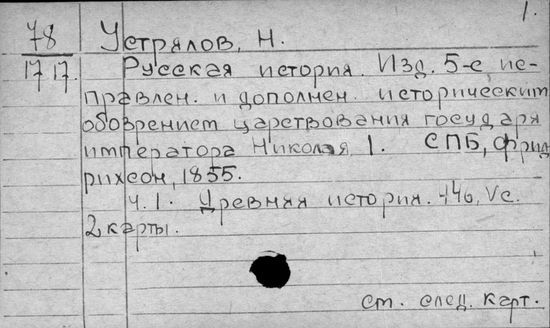 1.
78 Устрялов, Н.
1717. Русская история. Изд. 5-е, ис-
правлен. и дополнен. историческим
обозрением царствования государя
императора Николая I. СПБ, Фрид
рихсон, 1855.
ч. 1. Древняя история. 446, V с.
2 карты.
ст. след. карт.